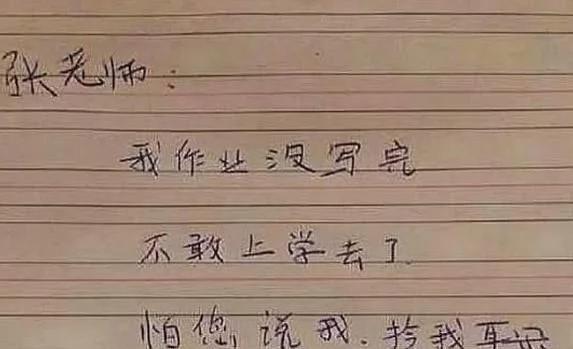 张老师：
我作业没写完
不敢上学去了.
怕您说我.拎我耳